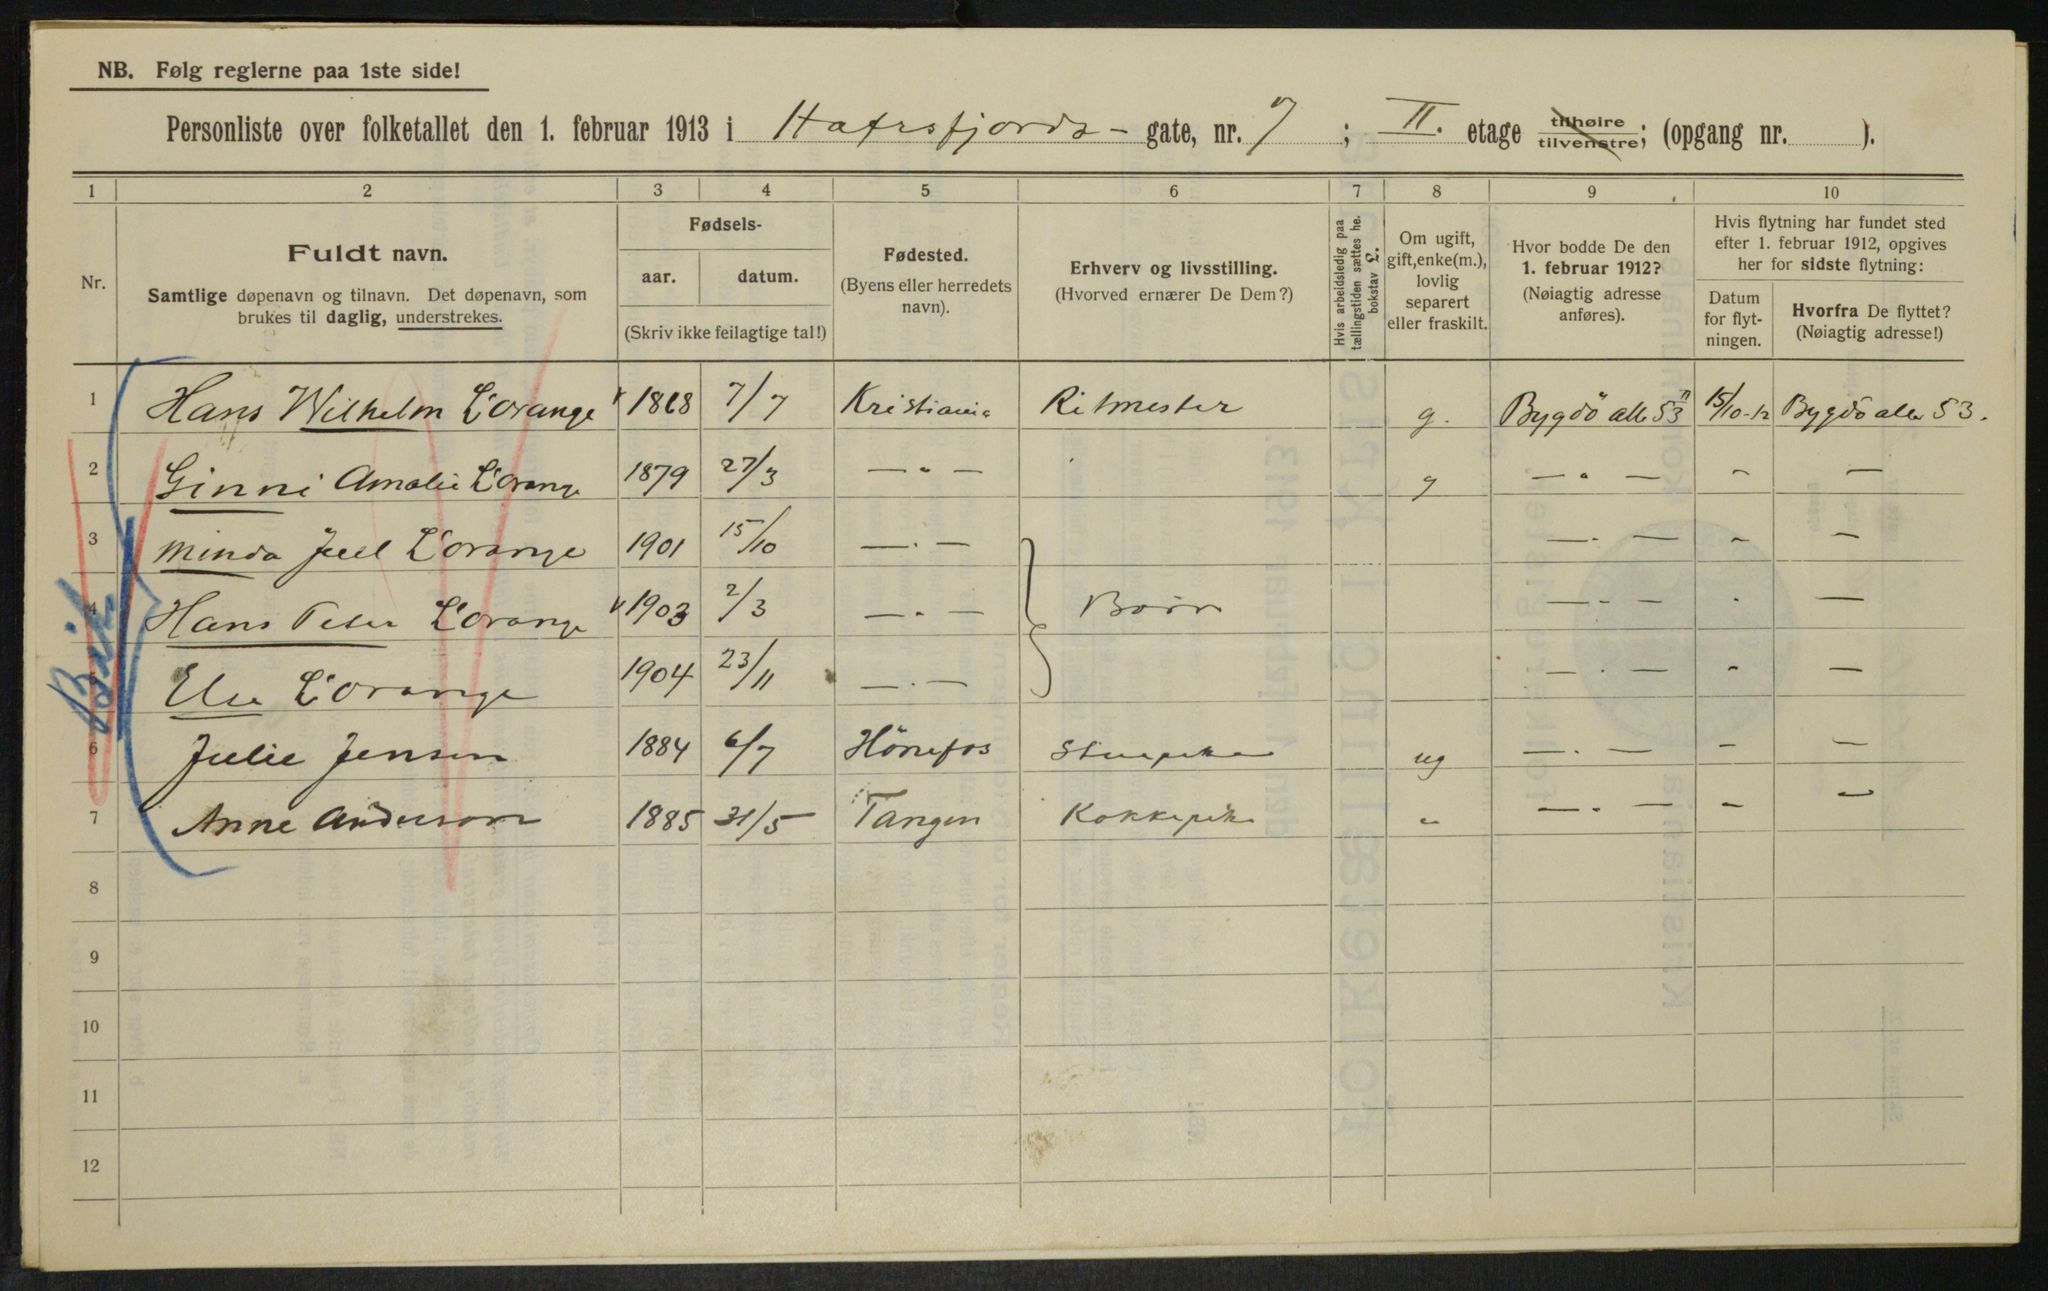 NB. Følg reglerne paa 1ste side!
Personliste over folketallet den 1. februar 1913 i Hafrsfjords- gate, nr. 7 ; II. etage tilhøire tilvenstre; (opgang nr. ).
1 2 3 4 5 6 7 8 9 10
Nr.
Fuldt navn.
Samtlige døpenavn og tilnavn. Det døpenavn, som
brukes til daglig, understrekes.
Fødsels-
aar. datum.
(Skriv ikke feilagtige tal!)
Fødested.
(Byens eller herredets
navn).
Erhverv og livsstilling.
(Hvorved ernærer De Dem?)
Hvis arbeidsledig paa
tællingstiden sættes he.
bokstav L.
Om ugift,
gift, enke(m.),
lovlig
separert
eller fraskilt.
Hvor bodde De den
1. februar 1912?
(Nøiagtig adresse
anføres).
Hvis flytning har fundet sted
efter 1. februar 1912, opgives
her for sidste flytning:
Datum
for flyt-
ningen.
Hvorfra De flyttet?
(Nøiagtig adresse!)
1 Hans Wilhelm L'orange 1868 7/7 Kristiania Ritmester g. Bygdö alle 53 II 15/10-12 Bygdö alle 53.
2 Ginni Amalie L'orange 1879 27/3 — " — g — " — - —
3 Minda Juel L'orange 1901 15/10 — . — — . — - —
4 Hans Peter L'orange 1903 2/3 — . — Börn — . — - —
5 Else L'orange 1904 23/11 — . — — . — - —
6 Julie Jensen 1884 6/7 Hönefos Stuepike ug — . — - —
7 Anne Anderson 1885 31/5 Tangen Kokkepike " — . — - —
8
9
10
11
12